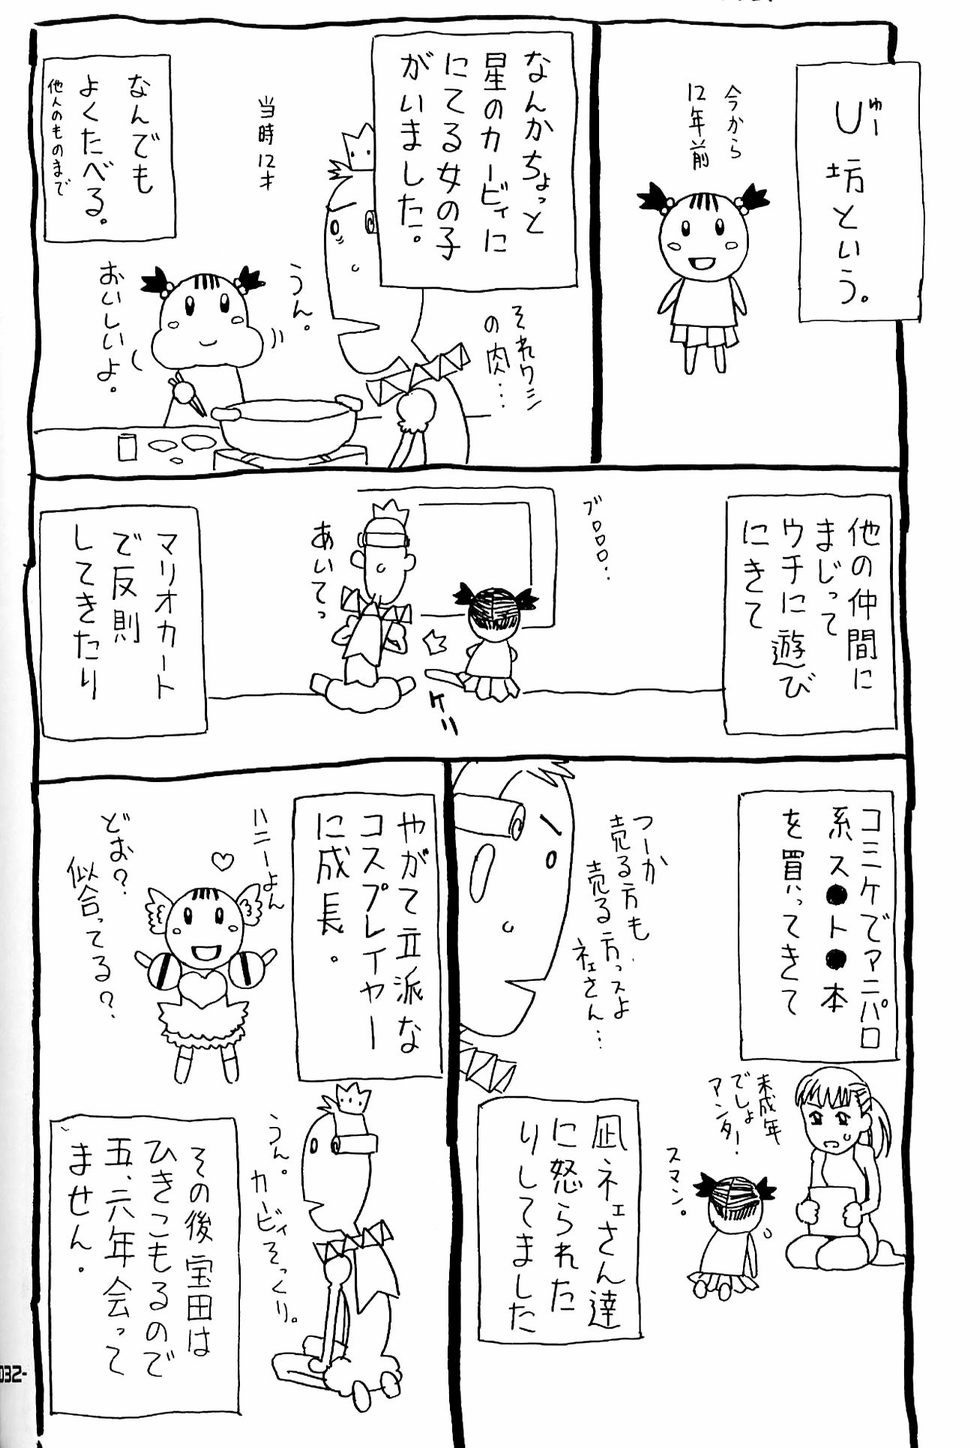 U坊という。
ゅー
今から
12年前
なんかちょっと
星のカービィに
にてる女の子
がいました。
当時12才
なんでも
よくたべる。
他人のものまで
それワシ
の肉…
うん。
おいしいよ。
他の仲間に
まじって
ウチに遊び
にきて
ブロロロ…
あいてっ
ケリ
マリオカート
で反則
してきたり
コミケでアニパロ
系ス●ト●本
を買ってきて
つーか
売る方も
売る方っスよ
ネェさん…
未成年
でしょ
アンター
スマン。
凪ネェさん達
に怒られた
りしてました
やがて立派な
コスプレイヤー
に成長。
ハニーよん
どお?
似合ってる?
うん。
カービィそっくり。
その後宝田は
ひきこもるので
五、六年会って
ません。
032-